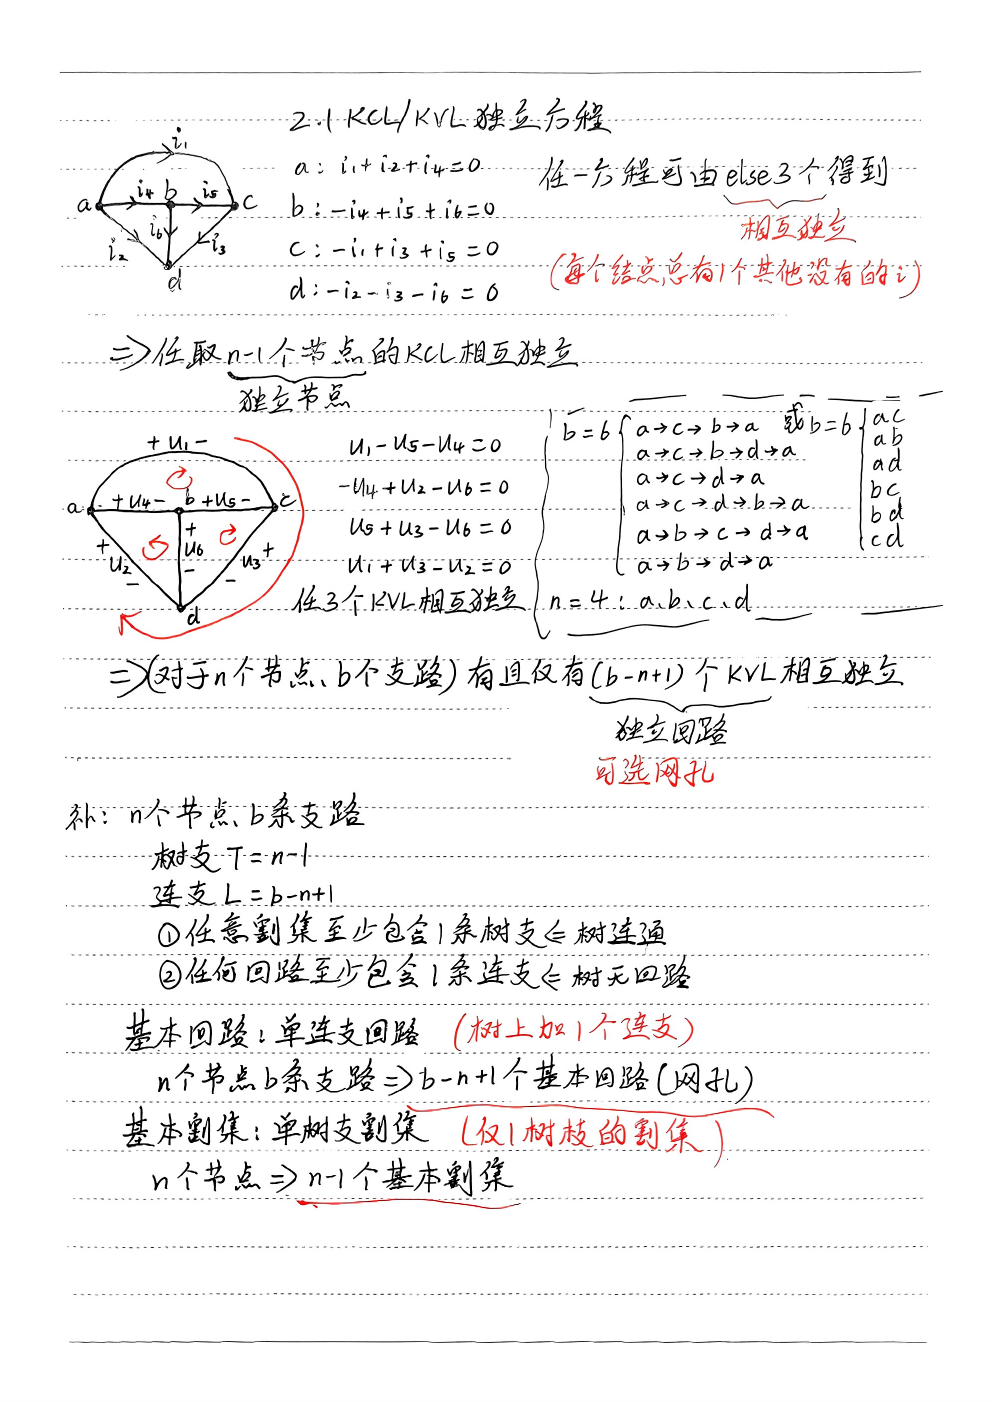 2.1 KCL/KVL独立方程
i₁
i₄ b i₅
a c
i₆
i₂ i₃
d
a: i₁+i₂+i₄=0
b: -i₄+i₅+i₆=0
c: -i₁+i₃+i₅=0
d: -i₂-i₃-i₆=0
任一方程可由else3个得到
相互独立
(每个结点总有1个其他没有的i)
⇒任取n-1个节点的KCL相互独立
独立节点
+ u₁ -
a +u₄- b +u₅- c
+ u₂ -
+ u₆ -
u₃ +
-
d
u₁-u₅-u₄=0
-u₄+u₂-u₆=0
u₅+u₃-u₆=0
u₁+u₃-u₂=0
任3个KVL相互独立
b=6 { a→c→b→a
a→c→b→d→a
a→c→d→a
a→c→d→b→a
a→b→c→d→a
a→b→d→a
或b=6 { ac
ab
ad
bc
bd
cd
n=4: a、b、c、d
⇒(对于n个节点、b个支路)有且仅有(b-n+1)个KVL相互独立
独立回路
可选网孔
补: n个节点、b条支路
树支T=n-1
连支L=b-n+1
①任意割集至少包含1条树支⇐树连通
②任何回路至少包含1条连支⇐树无回路
基本回路:单连支回路 (树上加1个连支)
n个节点b条支路⇒b-n+1个基本回路(网孔)
基本割集:单树支割集 (仅1树枝的割集)
n个节点⇒n-1个基本割集